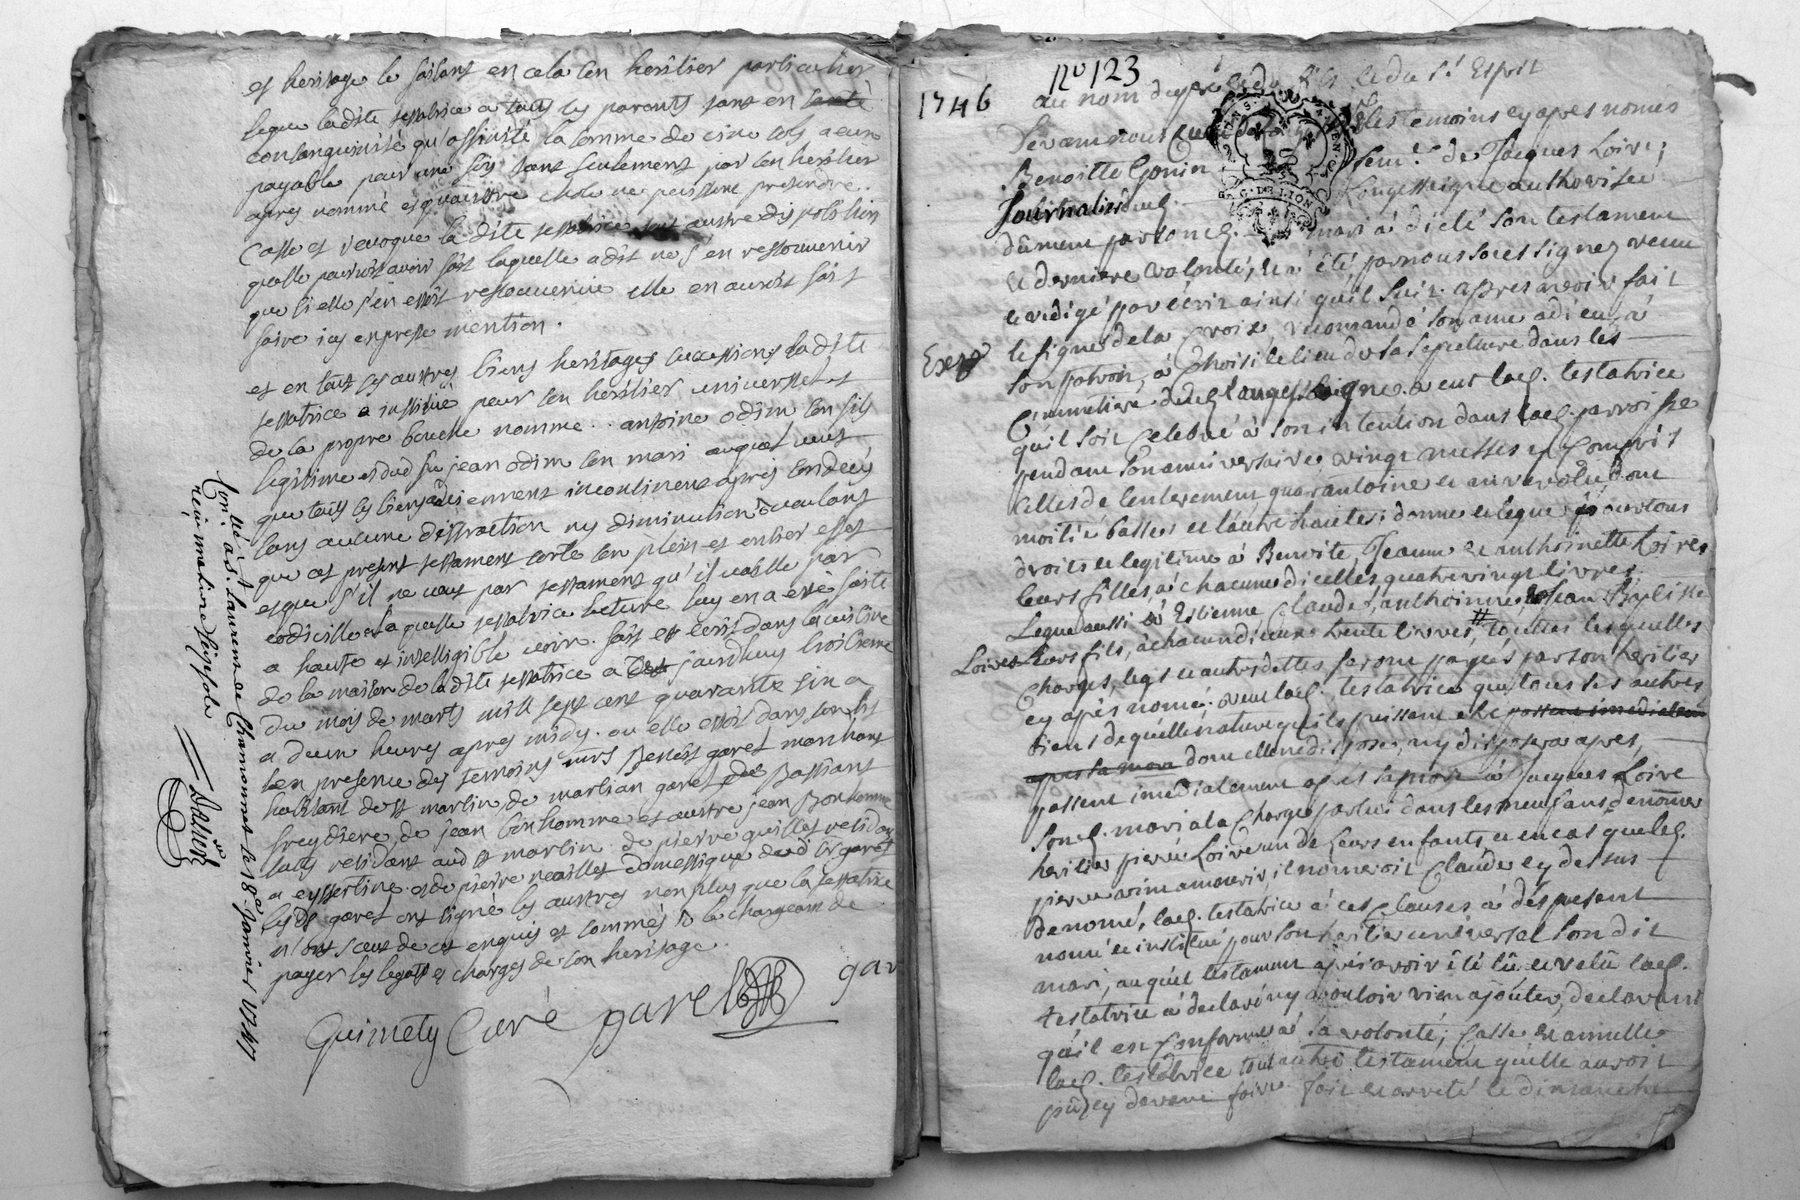 et heritage le faisant en cela son heritier particulier
legue ladite testatrice a touts ses parents tant en
consanguinité qu'affinité la somme de cinc sols a eux
payable pour une fois tant seulement par son heritier
apres nommé et qu'autre chose ne puissent pretendre.
Casse et revoque la dite testatrice tout autre disposition
quelle pourroit avoir fait laquelle a dit ne s'en ressouvenir
que si elle s'en estoit ressouvenue elle en auroit fait
faire icy expresse mention.
et en touts ses autres biens heritages successions ladite
testatrice a institué pour son heritier universel et
de sa propre bouche nommé .. antoine odin son fils
legitime et dud fu jean odin son mari auquel veut
que touts ses biens adviennent incontinent apres son decés
sans aucune distraction ny diminution voulant
que cet present testament sorte son plein et entier effet
et que s'il ne vaut par testament qu'il vaille par
codicille a la quelle testatrice lecture luy en a eté faite
a haute et intelligible voix. fait et ecrit dans la cuisine
de la maison de ladite testatrice a jourdhuy troisieme
du mois de marts mill sept cent quarante six a
a deux heures apres midy. ou elle estoit dans son lit
en presence des temoins Benoit garel marchant
habitant de st martin de martian garel de
de jean bonhomme et autre jean Bonhomme
touts residant aud st martin de pierre quillet residant
a eyssertine et de pierre neaillet domestique
lesd garel ont signé les autres non plus que la testatrice
n'ont sceut de ce enquis et sommés & la chargeant de
payer les legats et charges de son heritage.
Guimety Curé garel gar
Conllé à St laurent de Chamousset le 18e Janvier 1747
reçu une livre
N° 123
1746
au nom du père et du fils et du St Esprit
Pardevant nous Curé et les temoins cy apres només
Benoitte Gonin femе de Jacques Loire,
Journalier Longessaigne authorisée
dûment par son mari à dicté son testament
et derniere volonté, et à été par nous soussignez reçu
et redigé par écrit ainsi qu'il suit. apres avoir fait
le signe de la Croix, recomandé son ame a dieu, à
son patron, à choisi le lieu de sa sepulture dans les
Cimmetiere dud Longessaigne. veut lad. testatrice
qu'il soit Celebré à son intention dans lad parroisse
pendant son anniversaire, vingt messes y Compris
Celles de l'enterrement quarantaine et an revolu, dont
moitié basses et l'autre hautes; donne et legue pour tous
droits et legitime à Benoite, Jeanne et anthoinette Loires
leurs filles, à chacune d'icelles quatre vingt livres.
Legue aussi à Estienne Claude, anthoinne, et Jean Baptiste
Loires leurs fils, à chacun d'iceux trente livres, # toutes lesquelles
Charges, legs et autres dettes seront payés par son heritier
cy après nomé. veut lad. testatrice que tous ses autres
biens de quelle nature qu'ils puissent etre passent imediatem
apres sa mort dont elle ne dispose, ny disposera apres,
passent imediatement apres sa mort à Jacques Loire
son d. mari a la charge par lui dans les neuf ans de nommer
heritier pierre Loire un de leurs enfants, et en cas que led.
pierre vint a mourir, il nomeroit Claude cy dessus
denomé, lad. testatrice à ces clauses à dés present
nomé et institué pour son heritier universel son dit
mari, auquel testament après avoir été lû et relû lad.
testatrice à declaré ny vouloir rien ajouter, declarant
qu'il est conforme à sa volonté; Casse et annulle
lad. testatrice tout autre testament qu'elle auroit
pû cy devant faire. fait et arreté le dimanche